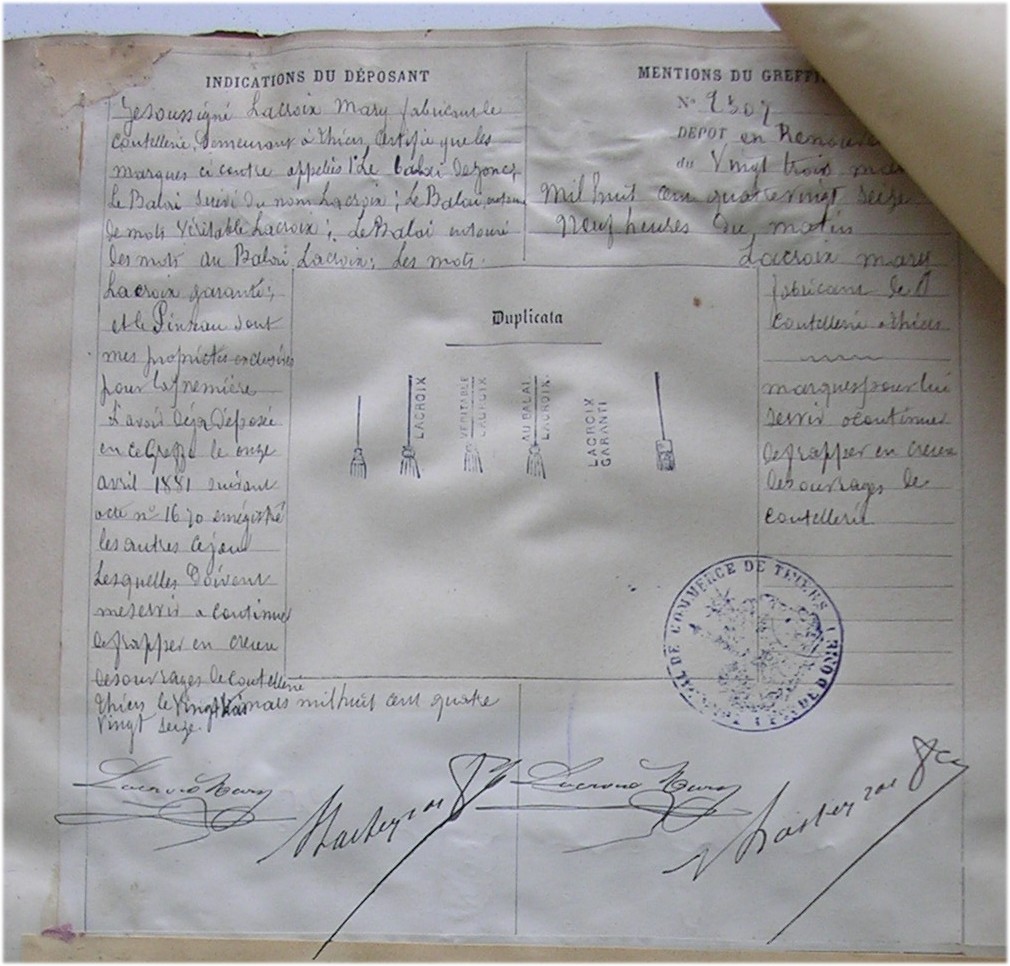 INDICATIONS DU DÉPOSANT
Je soussigné Lacroix Mary fabricant de
Coutellerie, Demeurant à Thiers Certifie que les
marques ci contre appelées 1° Le balai de joncs,
Le Balai suivi du nom Lacroix; Le Balai,
de mots Véritable Lacroix; Le Balai entouré
des mots au Balai Lacroix; Les mots:
Lacroix garanti;
et le Pinceau sont
mes propriétés exclusives
pour la première
l'avoir déja déposée
en ce Greffe le onze
avril 1881 suivant
acte n° 1670 enrégistré
les autres ce jour
Lesquelles doivent
me servir a continuer
de frapper en creux
des ouvrages de coutellerie
Thiers le Vingt trois mars mil huit cent quatre
Vingt seize.
MENTIONS DU
N°
DEPOT en
du Vingt trois mars
Mil huit cent quatre vingt seize
Neuf heures du matin
Lacroix mary
fabricant de
Coutellerie a Thiers
marques pour lui
servir a continuer
de frapper en creux
des ouvrages de
Coutellerie
Duplicata
LACROIX
VÉRITABLE
LACROIX
AU BALAI
LACROIX.
LACROIX
GARANTI
DE COMMERCE DE THIERS
PUY-DE-DOME
Lacroix Mary
Lacroix Mary